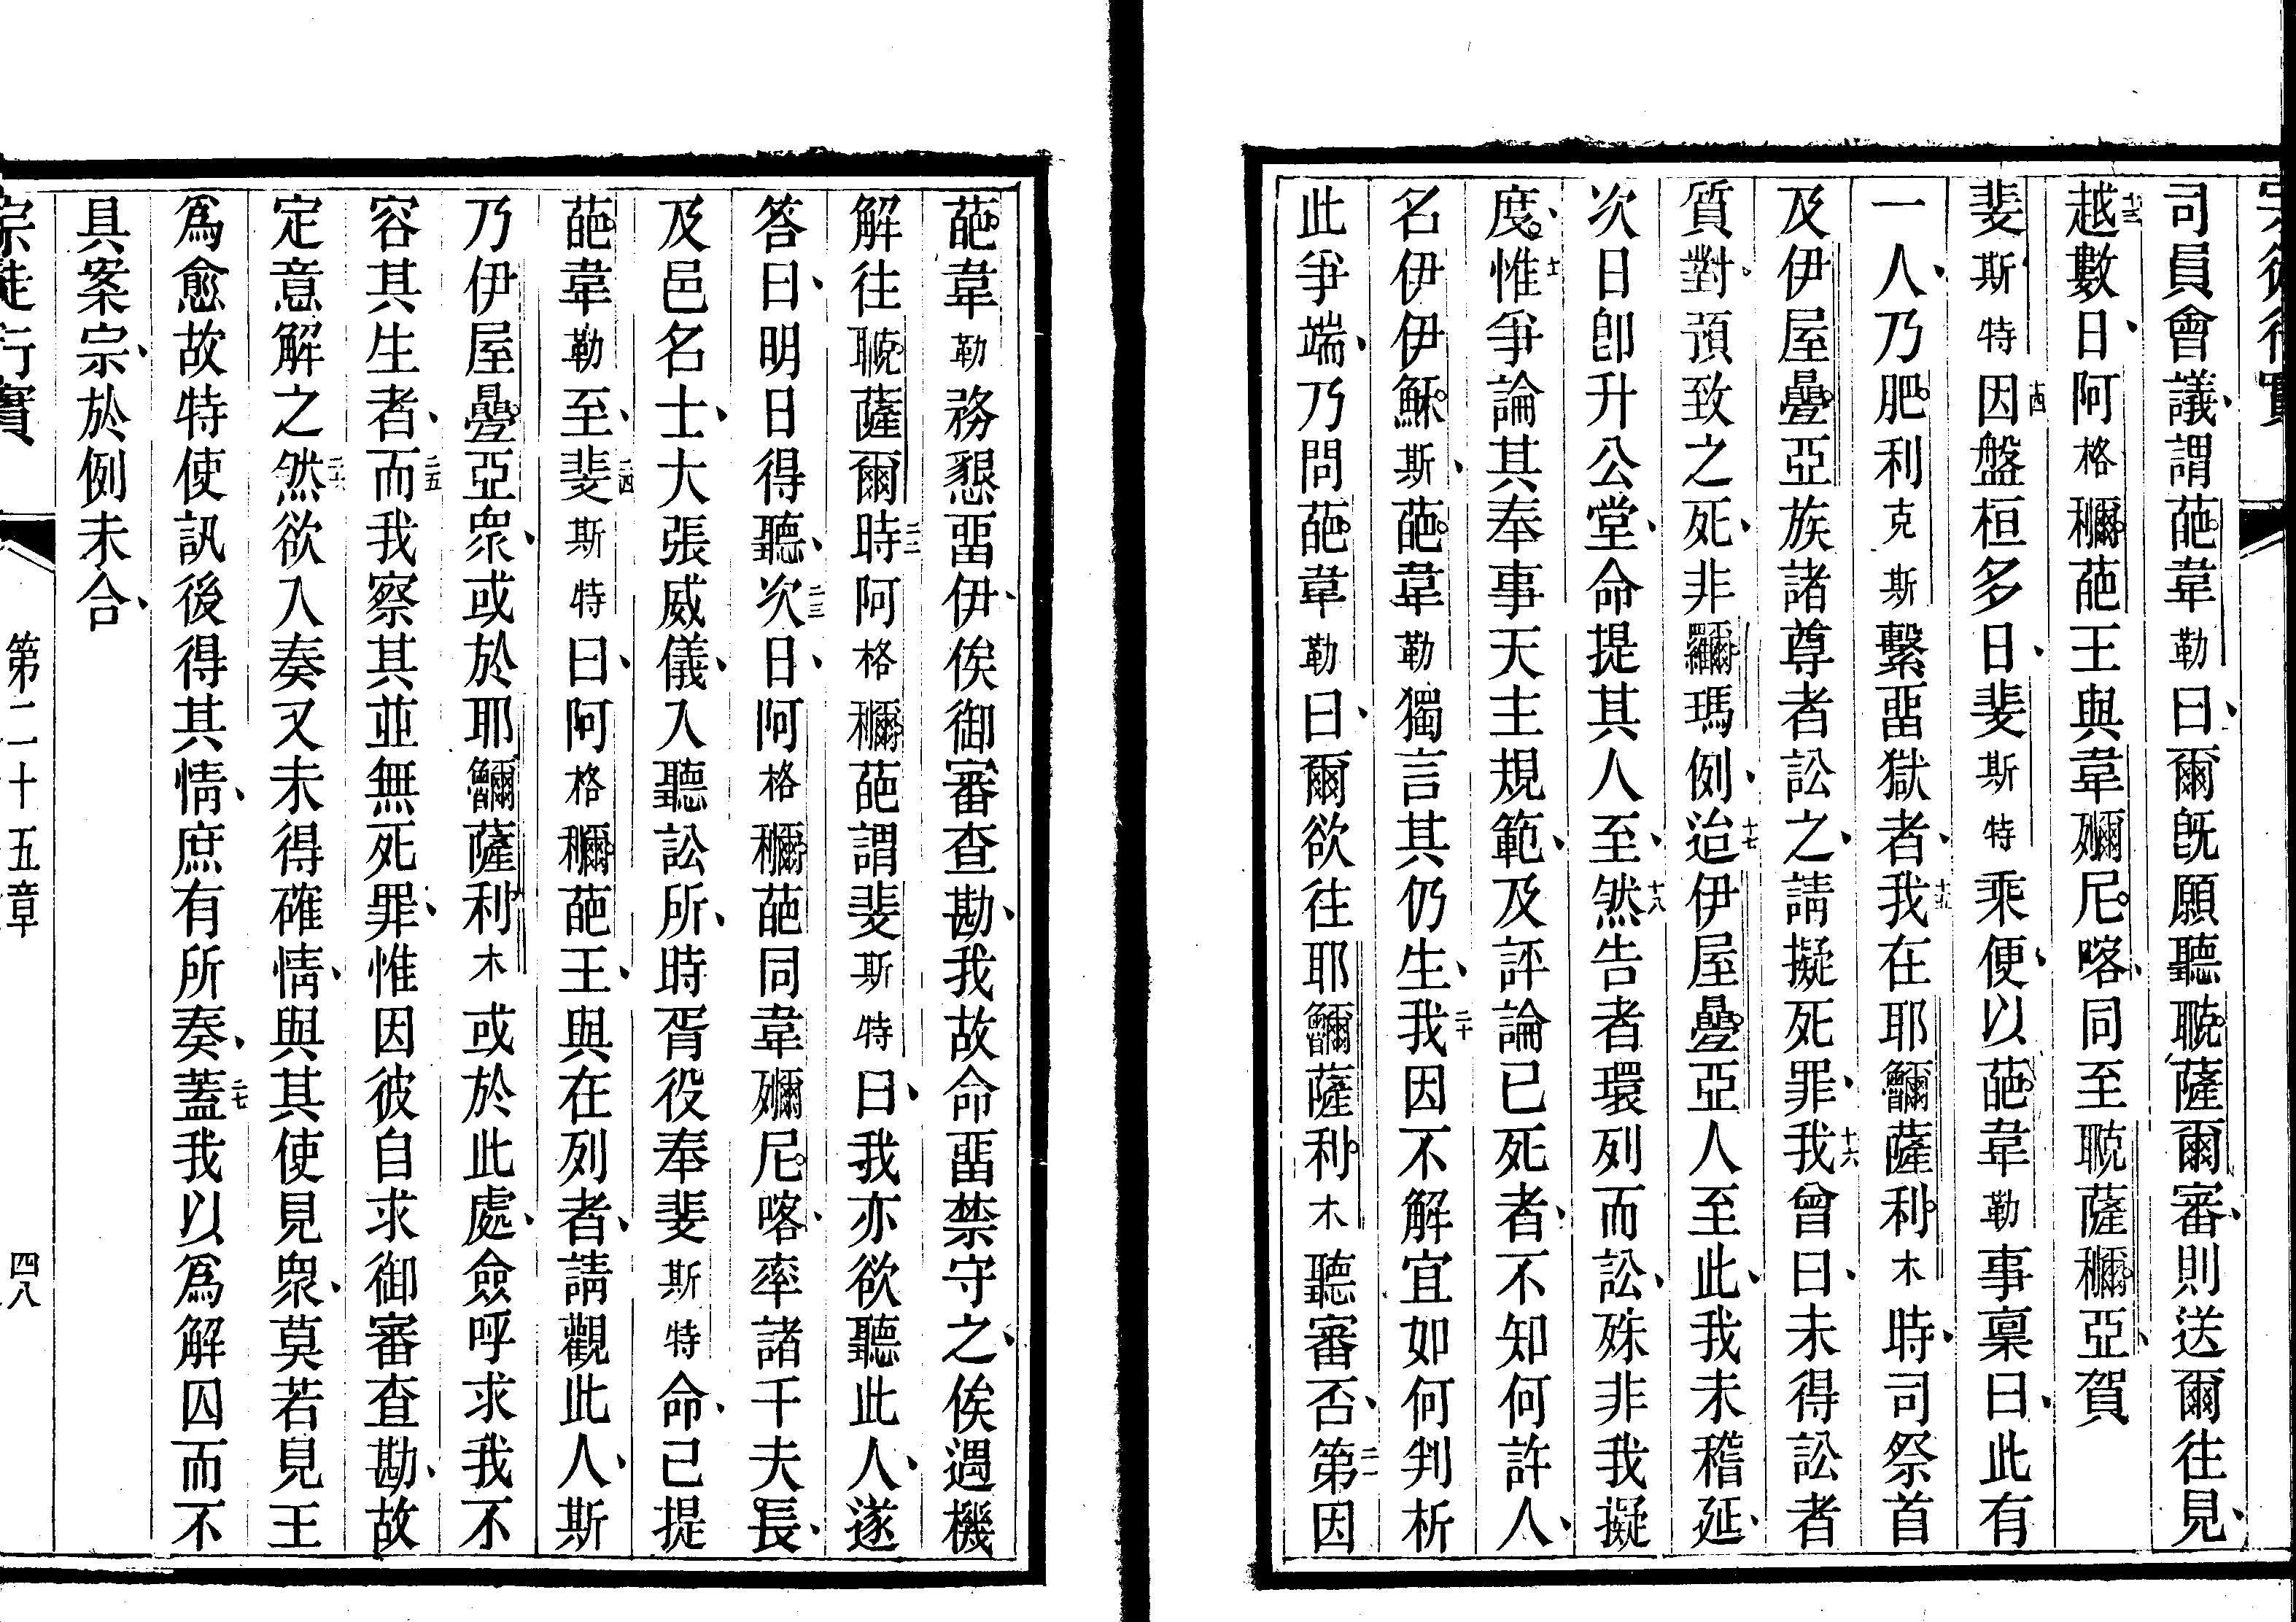 宗徒行實
司員會議謂葩韋勒曰爾旣願聽聭薩爾審則送爾往見
越十三數日阿格穪葩王與韋𡠹尼喀同至聭薩穪亞賀
斐斯特因十四盤桓多日斐斯特乘便以葩韋勒事稟曰此有
一人乃肥利克斯繫畱獄者我十五在耶 薩利木時司祭首
及伊屋疊亞族諸尊者訟之請擬死罪我十六曾曰未得訟者
質對預致之死非 瑪例迨十七伊屋疊亞人至此我未稽延
次日卽升公堂命提其人至然十八告者環列而訟殊非我擬
度惟十九爭論其奉事天主規範及評論已死者不知何許人
名伊伊穌斯葩韋勒獨言其仍生我二十因不解宜如何判析
此爭端乃問葩韋勒曰爾欲往耶 薩利木聽審否第二一因
葩韋勒務懇畱伊俟御審查勘我故命畱禁守之俟遇機
解往聭薩爾時二二阿格穪葩謂斐斯特曰我亦欲聽此人遂
答曰明日得聽次二三日阿格穪葩同韋𡠹尼喀率諸千夫長
及邑名士大張威儀入聽訟所時胥役奉斐斯特命已提
葩韋勒至斐二四斯特曰阿格穪葩王與在列者請觀此人斯
乃伊屋疊亞衆或於耶 薩利木或於此處僉呼求我不
容其生者而二五我察其並無死罪惟因彼自求御審查勘故
定意解之然二六欲入奏又未得確情與其使見衆莫若見王
爲愈故特使訊後得其情庶有所奏蓋二七我以爲解囚而不
具案宗於例未合
宗徒行實
第二十五章
四八